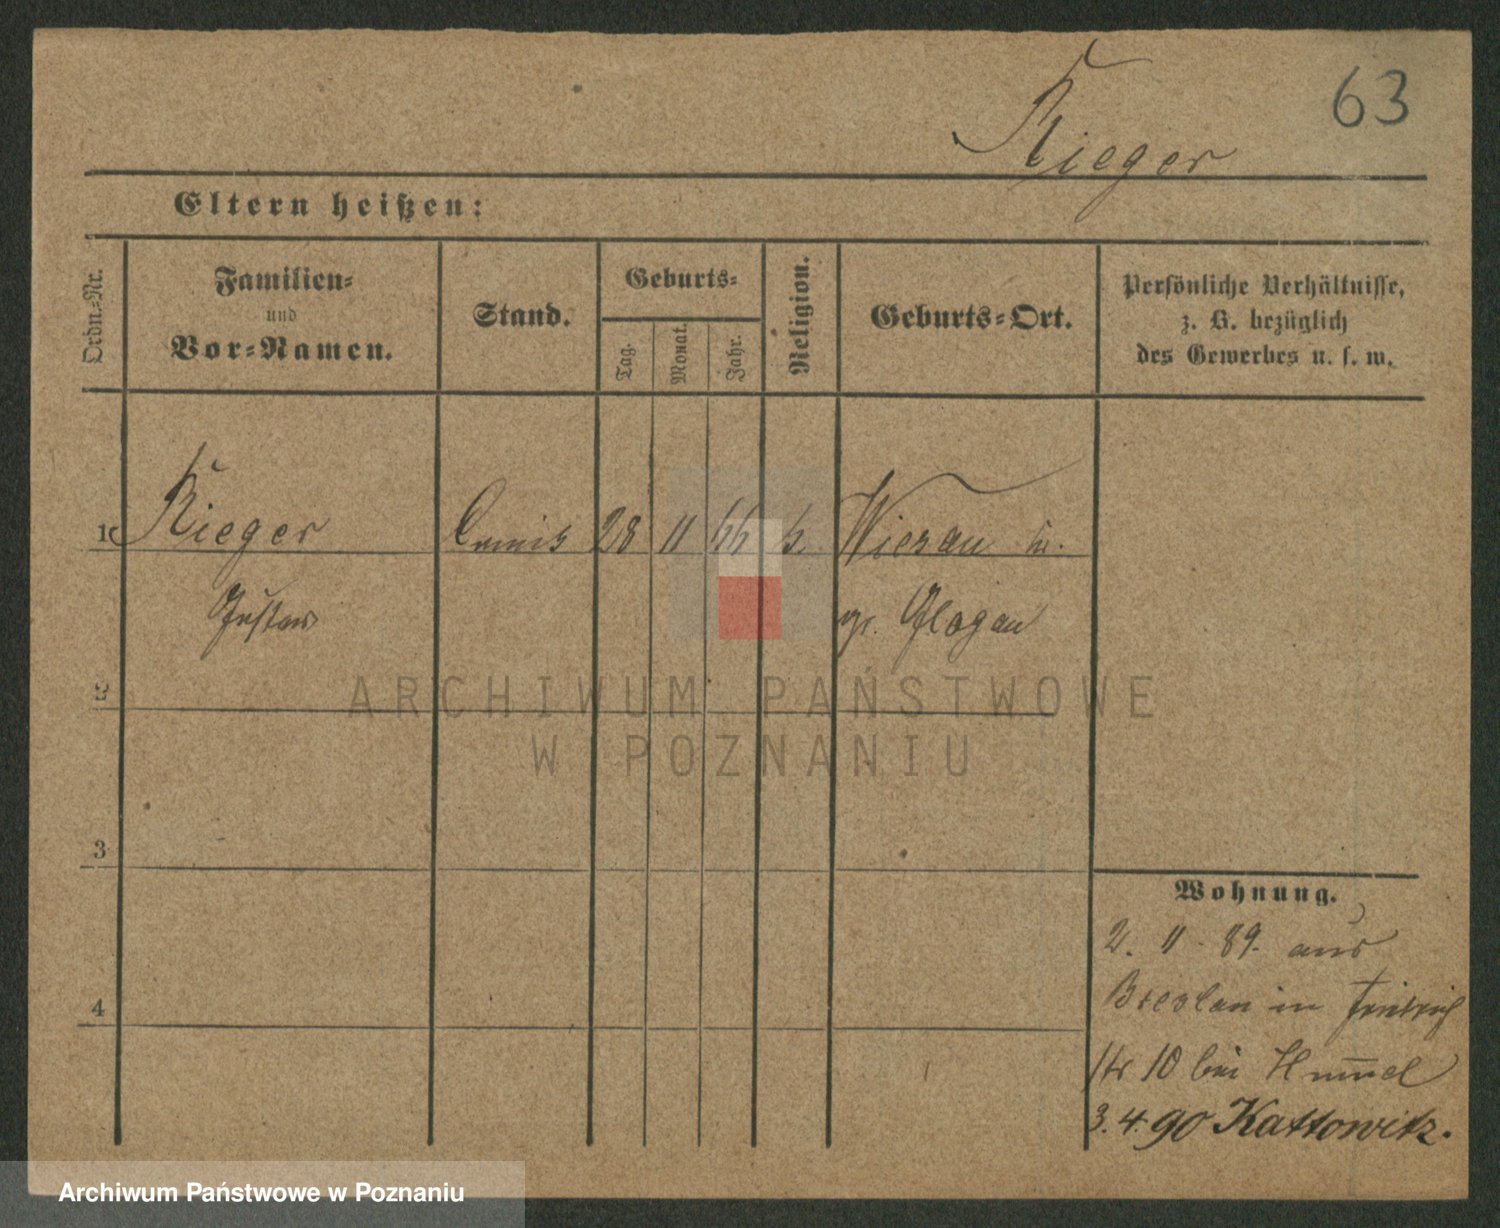 63
Rieger
Eltern heißen:
Ordn.-Nr.
Familien-
und
Vor-Namen.
Stand.
Geburts-
Tag.
Monat.
Jahr.
Religion.
Geburts-Ort.
Persönliche Verhältnisse,
z. B. bezüglich
des Gewerbes u. s. w.
1 Rieger Commis 28 11 66 k. Wiesau
Gustav gr. Glogau
2
ARCHIWUM PAŃSTWOWE
W POZNANIU
3
Wohnung.
2. 11. 89. aus
Breslau in Friedrich
4
str 10 bei Hummel
3. 4. 90 Kattowitz.
Archiwum Państwowe w Poznaniu